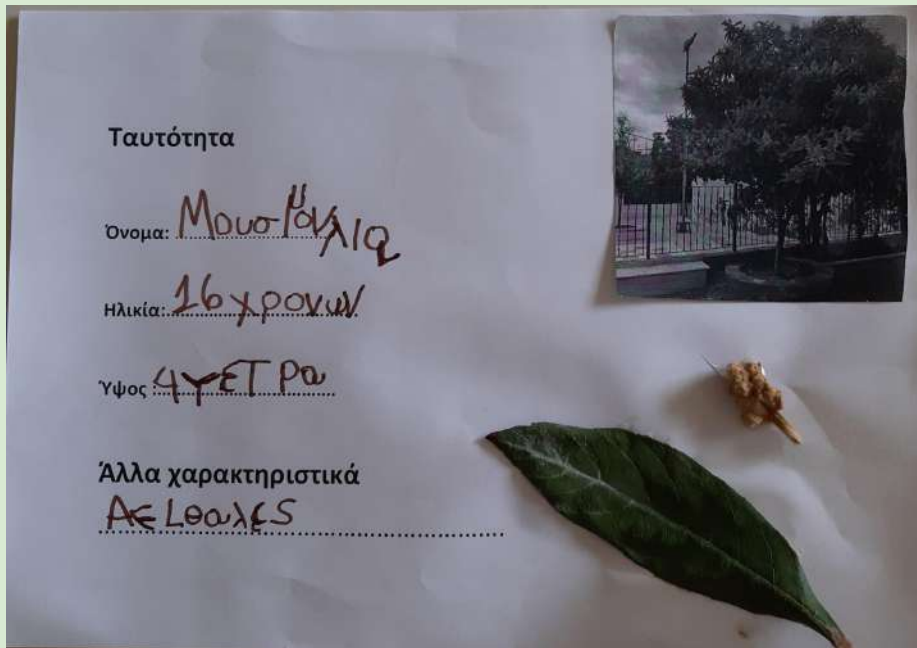 Ταυτότητα
Όνομα: Μουσμουλια
Ηλικία: 16 χρονων
Ύψος : 4 μετρα
Άλλα χαρακτηριστικά
Αειθαλές